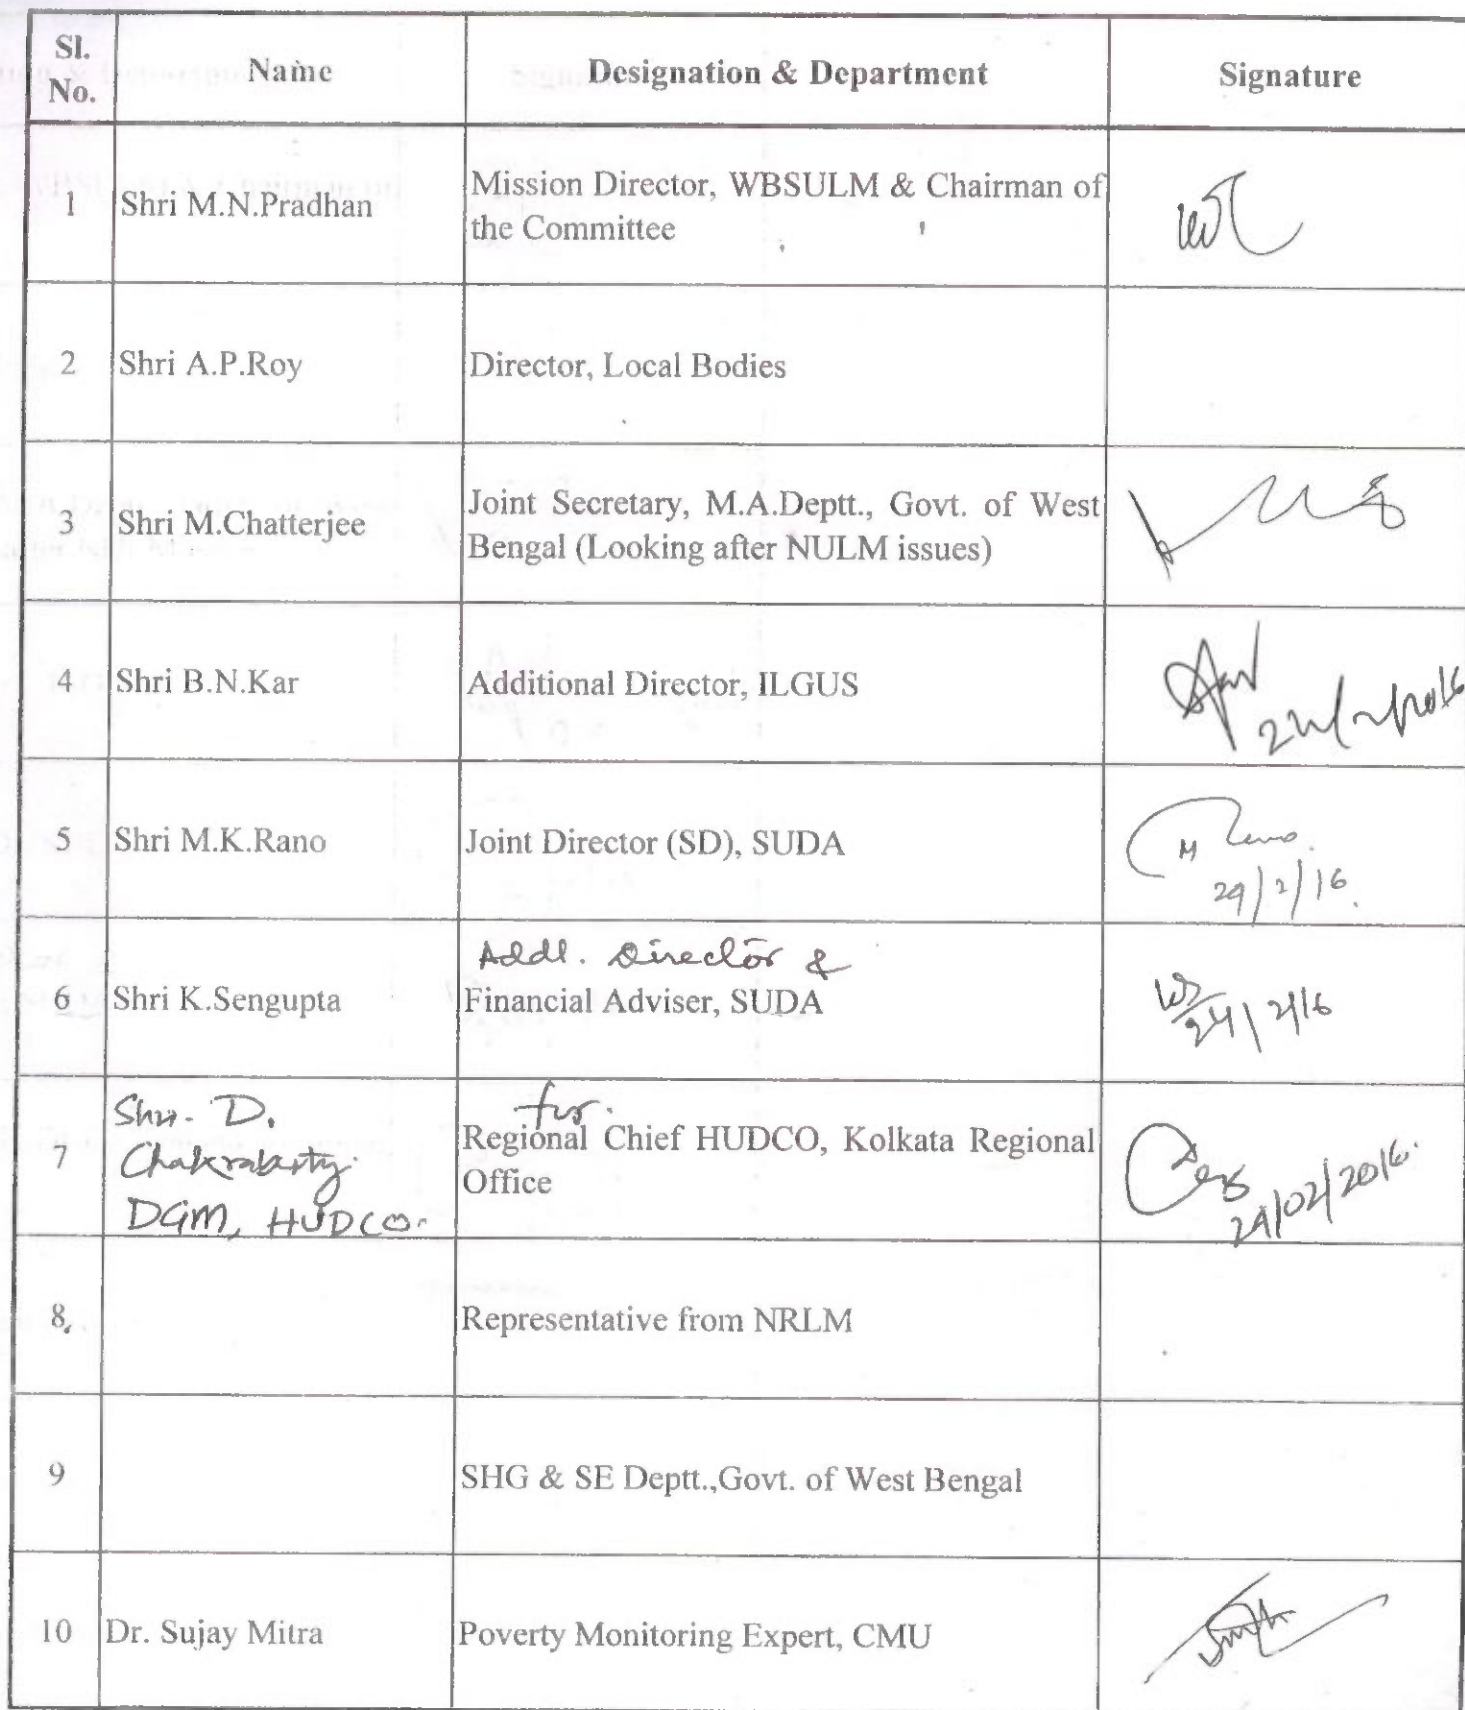 Sl.
No.
Name
Designation & Department
Signature
1
Shri M.N.Pradhan
Mission Director, WBSULM & Chairman of
the Committee
2
Shri A.P.Roy
Director, Local Bodies
3
Shri M.Chatterjee
Joint Secretary, M.A.Deptt., Govt. of West
Bengal (Looking after NULM issues)
4
Shri B.N.Kar
Additional Director, ILGUS
5
Shri M.K.Rano
Joint Director (SD), SUDA
M Rano.
29/2/16.
6
Shri K.Sengupta
Addl. Director &
Financial Adviser, SUDA
7
Shri. D.
Chakrabarty.
DGM, HUDCO.
for.
Regional Chief HUDCO, Kolkata Regional
Office
29/02/2016.
8.
Representative from NRLM
9
SHG & SE Deptt.,Govt. of West Bengal
10
Dr. Sujay Mitra
Poverty Monitoring Expert, CMU